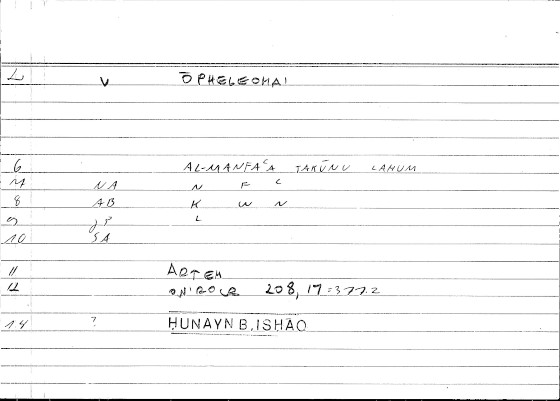 L V ŌPHELEOMAI
6 AL-MANFAʿA TAKŪNU LAHUM
7 NA N F ʿ
8 AB K W N
9 JP L
10 SA
11 ARTEM
12 ONIROCR 208,17=377.2
14 ? ḤUNAYN B. ISḤĀQ